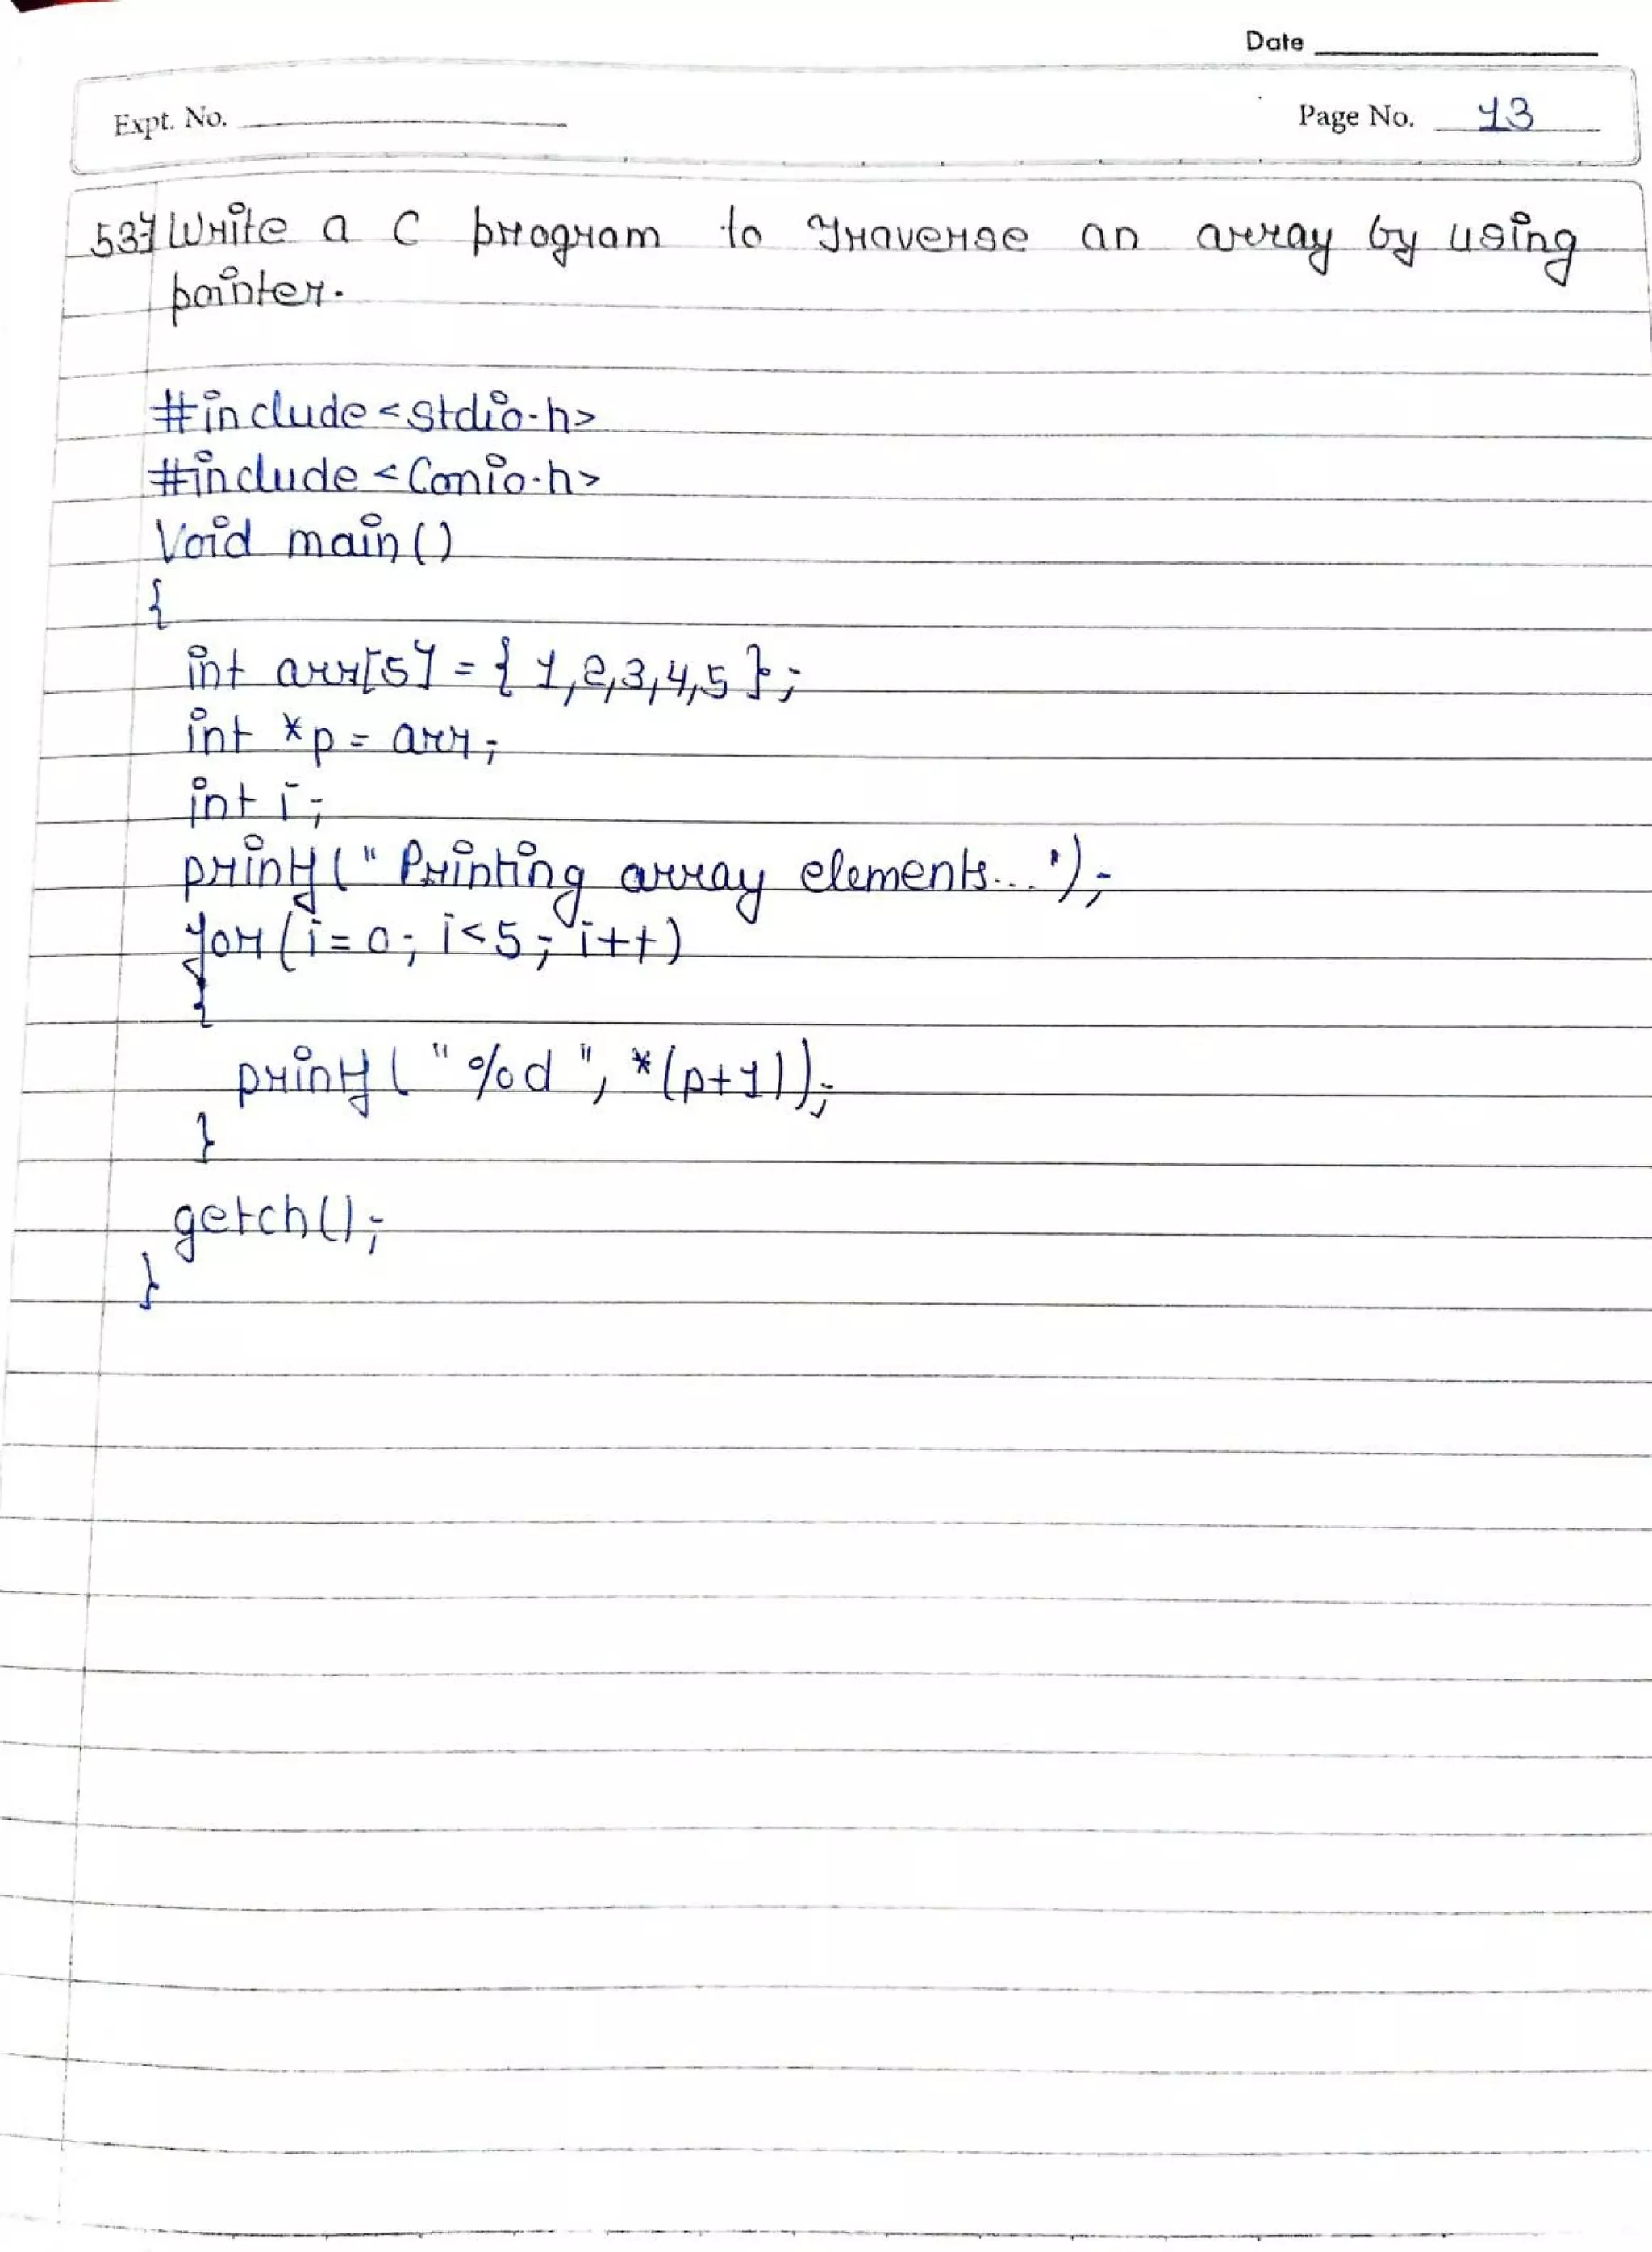 Date
Expt. No.
Page No. 13
53) Write a C program to Traverse an array by using
pointer.
#include<stdio.h>
#include <Conio.h>
Void main()
{
int arr[5] = { 1,2,3,4,5 };
int *p = arr;
int i;
printf(" Printing array elements... ');
for(i=0; i<5; i++)
{
printf( " %d ", *(p+1));
}
getch();
}